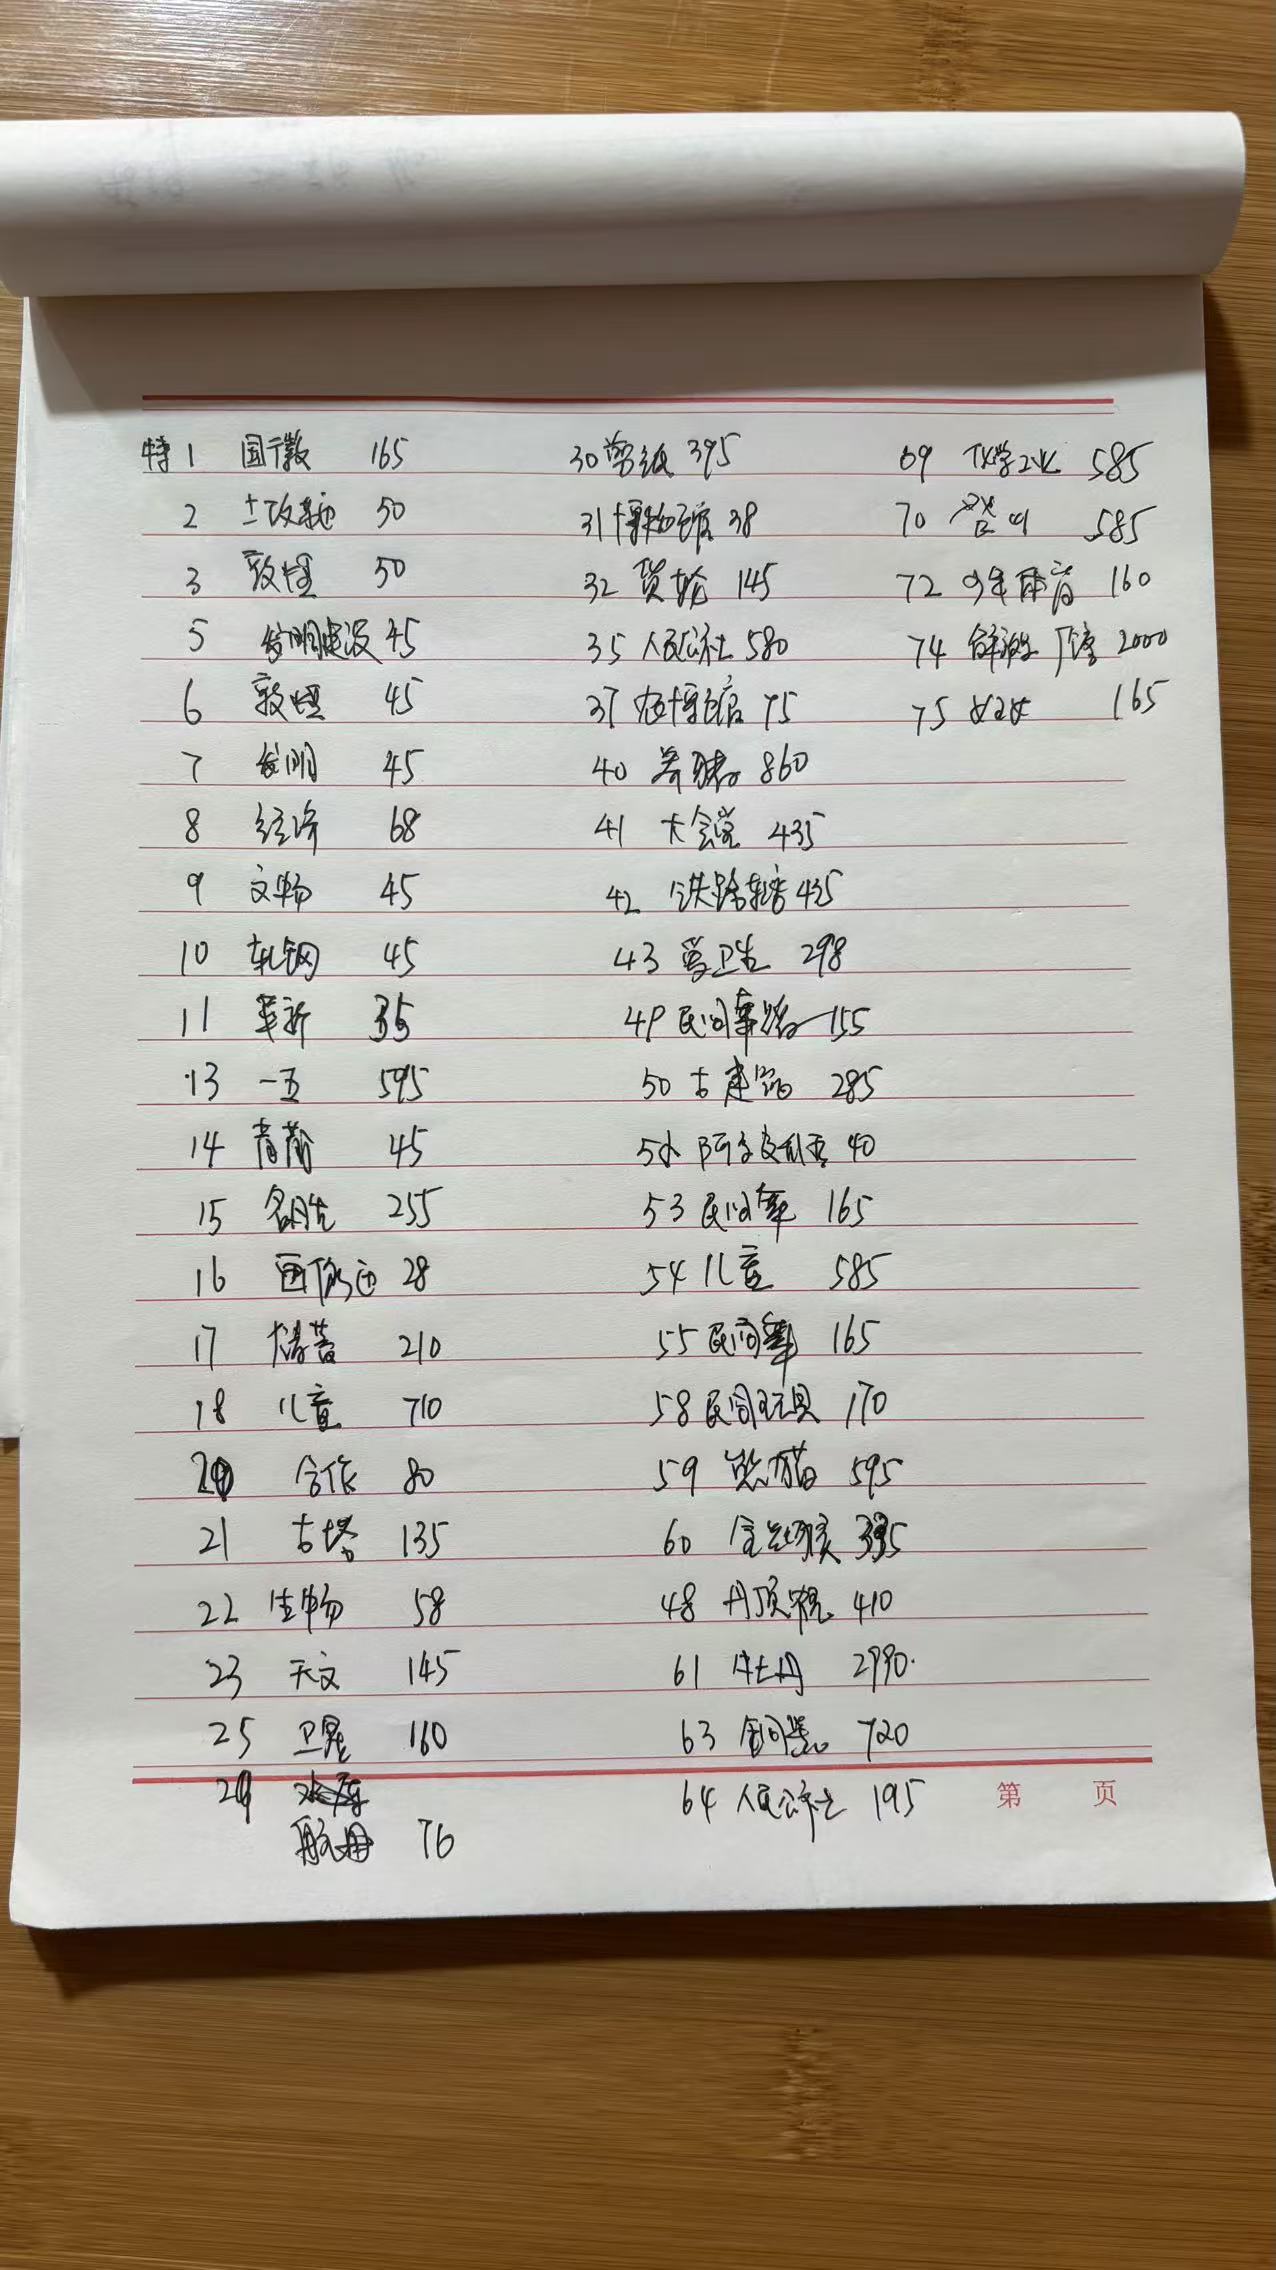 特1 国徽 165
2 土改 50
3 敦煌 50
5 伟明建设 45
6 敦煌 45
7 发明 45
8 经济 68
9 文物 45
10 轧钢 45
11 革新 35
13 一五 595
14 首都 45
15 名胜 255
16 画像 28
17 储蓄 210
18 儿童 710
20 合作 80
21 古塔 135
22 生物 58
23 天文 145
25 卫星 160
29
航母 76
30 剪纸 395
31 博物馆 38
32 货轮 145
35 人民公社 580
37 农博馆 75
40 养猪 860
41 大会堂 435
42 铁路 435
43 爱卫生 298
49 民间舞蹈 155
50 古建筑 285
52 阿尔及利亚 40
53 民间舞 165
54 儿童 585
55 民间舞 165
58 民间玩具 170
59 熊猫 595
60 金丝猴 335
48 丹顶鹤 410
61 牡丹 2990.
63 铜器 720
64 人民公社 195
69 化学工业 585
70 登山 585
72 少年体育 160
74 解放 2000
75 女 165
第 页